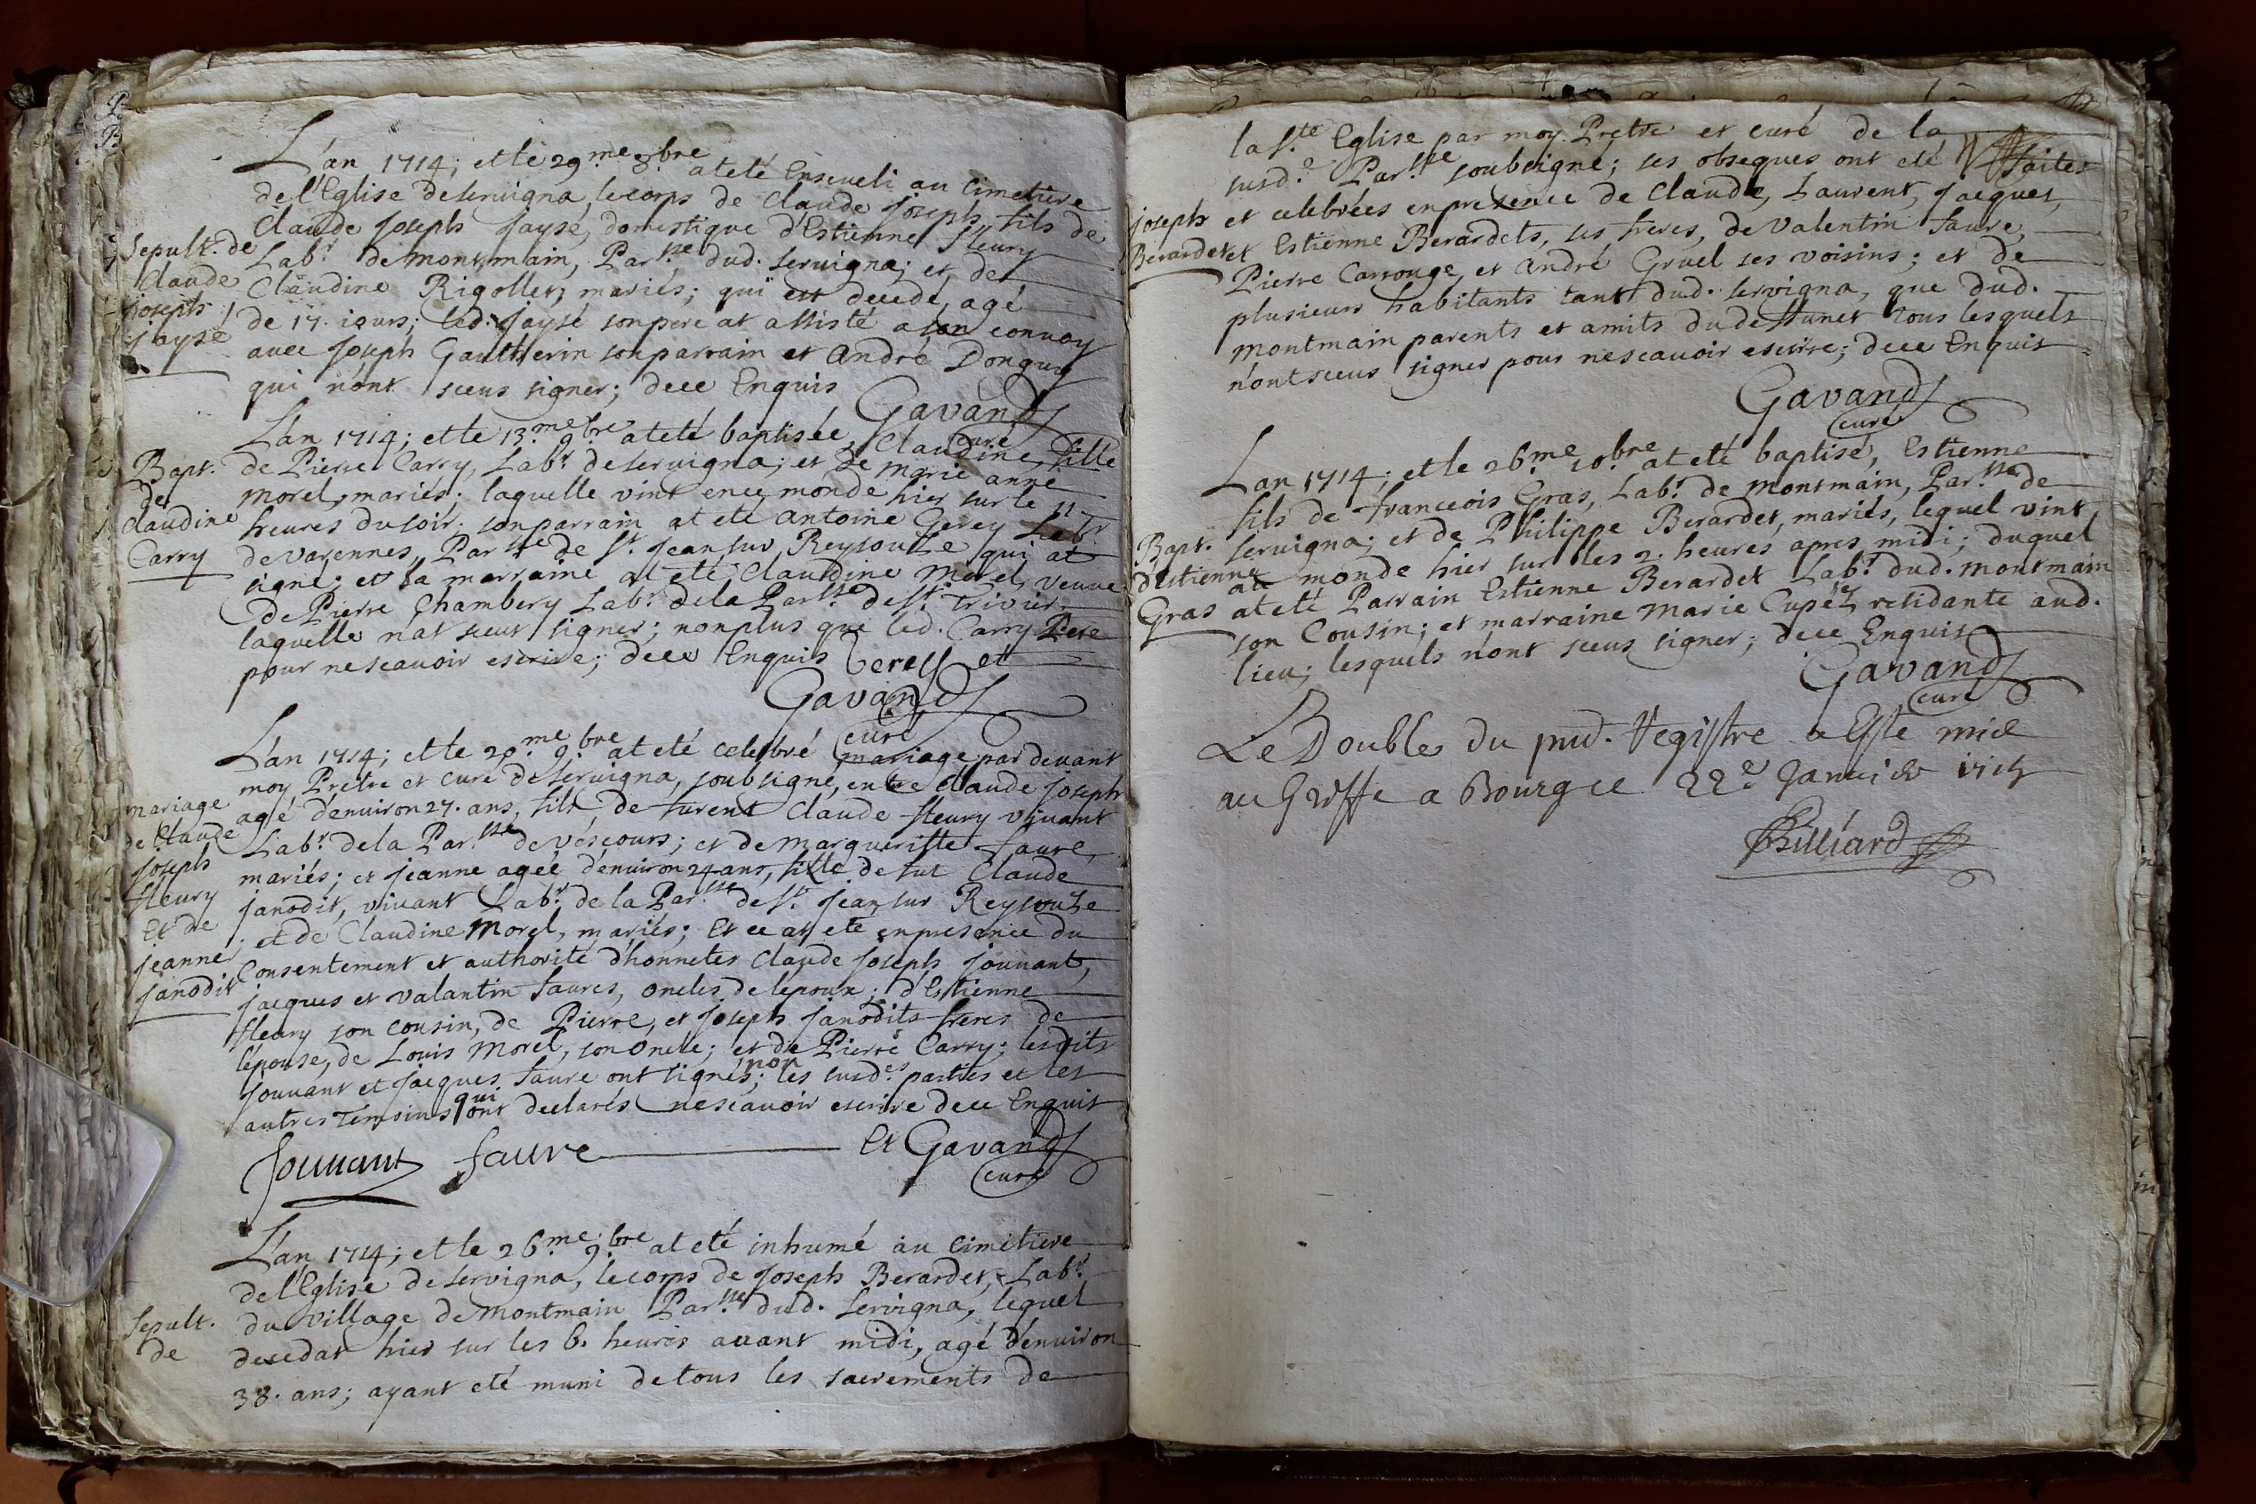 L'an 1714; et le 29.me 8.bre at eté Enseveli au Cimetiere
de l'Eglise de servigna, le corps de Claude joseph fils de
Claude joseph jaysé, domestique d'Estienne fleury
Sepult. de
Claude
joseph
jaysé
Lab.r de montmain, Par.sse dud. servigna; et de
Claudine Rigollet, mariés; qui est decedé, agé
de 17. iours; led. jaysé son pere at assisté a son convoy
avec joseph Gautherin son parrain et André Donguy
qui n'ont sceus signer; de ce Enquis
Gavand
curé
L'an 1714; et le 13.me 9.bre at eté baptisée, Claudine, fille
Bapt.
de
Claudine
Carry
de Pierre Carry, Lab.r de servigna; et de marie anne
morel, mariés; laquelle vint en ce monde hier sur le 11
heures du soir; son parrain at eté Antoine Gerey Lab.r
de varennes, Par.sse de S.t jean sur Reysouze qui at
signé; et sa marraine at eté Claudine morel, veuve
de Pierre Chambery Lab.r de la Par.sse de S.t Trivier
laquelle n'at sceut signer; non plus que led. Carry Pere
pour ne scavoir escrire; de ce Enquis Gerey et
Gavand
curé
L'an 1714; et le 29.me 9.bre at eté celebré mariage par devant
moy Prêtre et curé de servigna, soubsigné, entre Claude joseph
mariage
de Claude
joseph
fleury
Et de
jeanne
janodit
agé d'environ 27. ans, fils de furent Claude fleury vivant
Lab.r de la Par.sse de vescours; et de margueritte faure,
mariés; et jeanne agée d'environ 24 ans, fille de fut Claude
janodit, vivant Lab.r de la Par.sse de S.t jean sur Reysouze
et de Claudine Morel, mariés; Et ce at eté en presence du
Consentement et authorité d'honnetes Claude joseph jouvant,
jacques et valantin faures, oncles de lepoux; d'Estienne
fleury son cousin, de Pierre, et joseph janodits freres de
l'épouse, de Louis Morel, son Oncle; et de Pierre Carry; lesdits
jouvant et jacques faure ont signés; non les susd.es parties et les
autres Temoins qui ont declarés ne scavoir escrire de ce Enquis
Jouvant faure Et Gavand
curé
L'an 1714; et le 26.me 9.bre at eté inhumé au Cimetiere
de l'Eglise de servigna, le corps de joseph Berardet, Lab.r
Sepult.
de
du village de montmain Par.sse dud. servigna, lequel
decedat hier sur les 6. heures avant midi, agé d'environ
38. ans; ayant eté muni de tous les sacrements de
la S.te Eglise par moy Prêtre et curé de la
susd.e Par.sse soubsigné; ses obseques ont eté faites
joseph
Berardet
et celebrées en presence de Claude, Laurent, jacques,
et Estienne Berardets, ses freres, de valentin faure,
Pierre Carrouge, et André Gruel ses voisins; et de
plusieurs habitants tant dud. servigna, que dud.
montmain parents et amits du deffunct tous lesquels
n'ont sceus signer pour ne scavoir escrire; de ce Enquis
Gavand
curé
L'an 1714; et le 26.me 10.bre at eté baptisé, Estienne
fils de franceois Gras, Lab.r de montmain, Par.sse de
Bapt.
d'Estienne
Gras
servigna; et de Philippe Berardet, mariés, lequel vint
au monde hier sur les 2. heures apres midi; duquel
at eté Parrain Estienne Berardet Lab.r dud. montmain
son Cousin; et marraine Marie Cupéz residante aud.
lieu; lesquels n'ont sceus signer; de ce Enquis
Gavand
curé
Le Double du pnd. Registre a Este mis
au Greffe a Bourg ce 22e Janvier 1715
Billiard